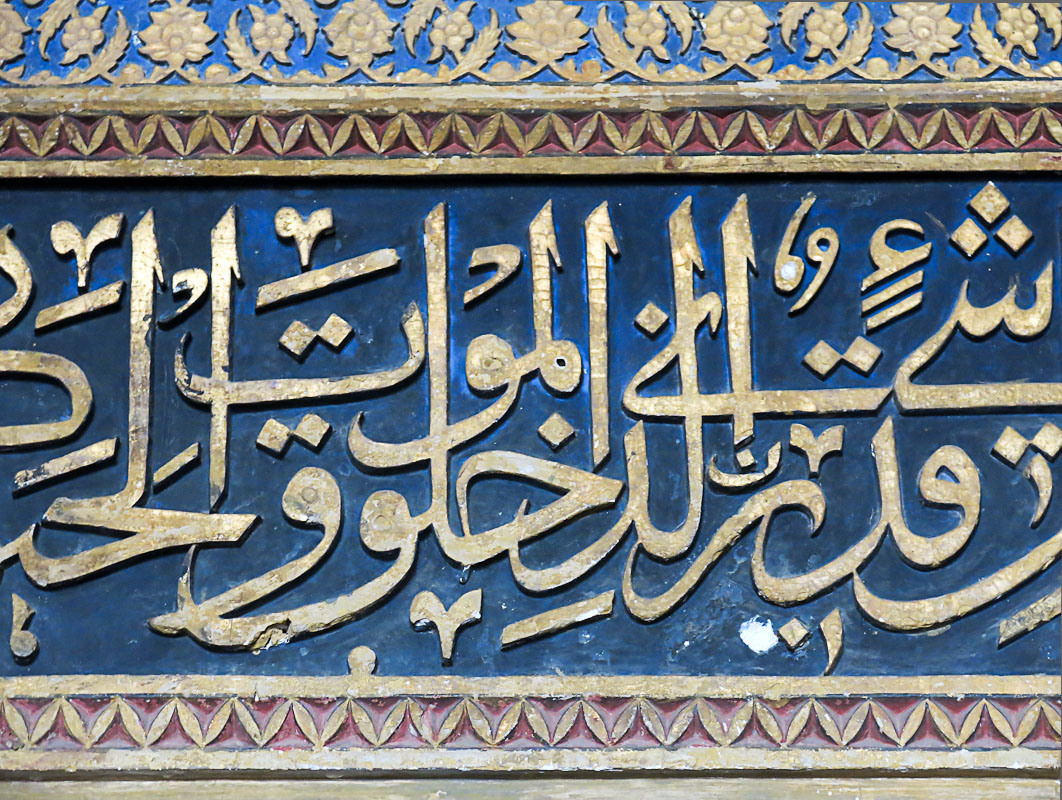 شيء قدير الذي خلق الموت والحيا